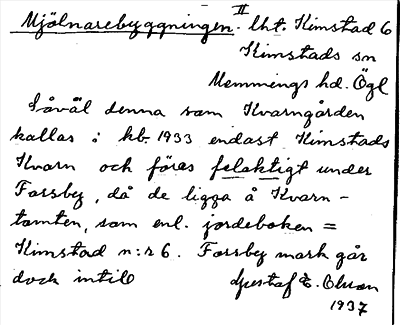 II
Mjölnarebyggningen. lht. Kimstad 6
Kimstads sn
Memmings hd. Ögl
Såväl denna som Kvarngården
kallas i kb. 1933 endast Kimstads
Kvarn och föres felaktigt under
Forsby, då de ligga å Kvarn-
tomten, som enl. jordeboken =
Kimstad n:r 6. Forsby mark går
dock intill Gustaf E. Olsson
1937